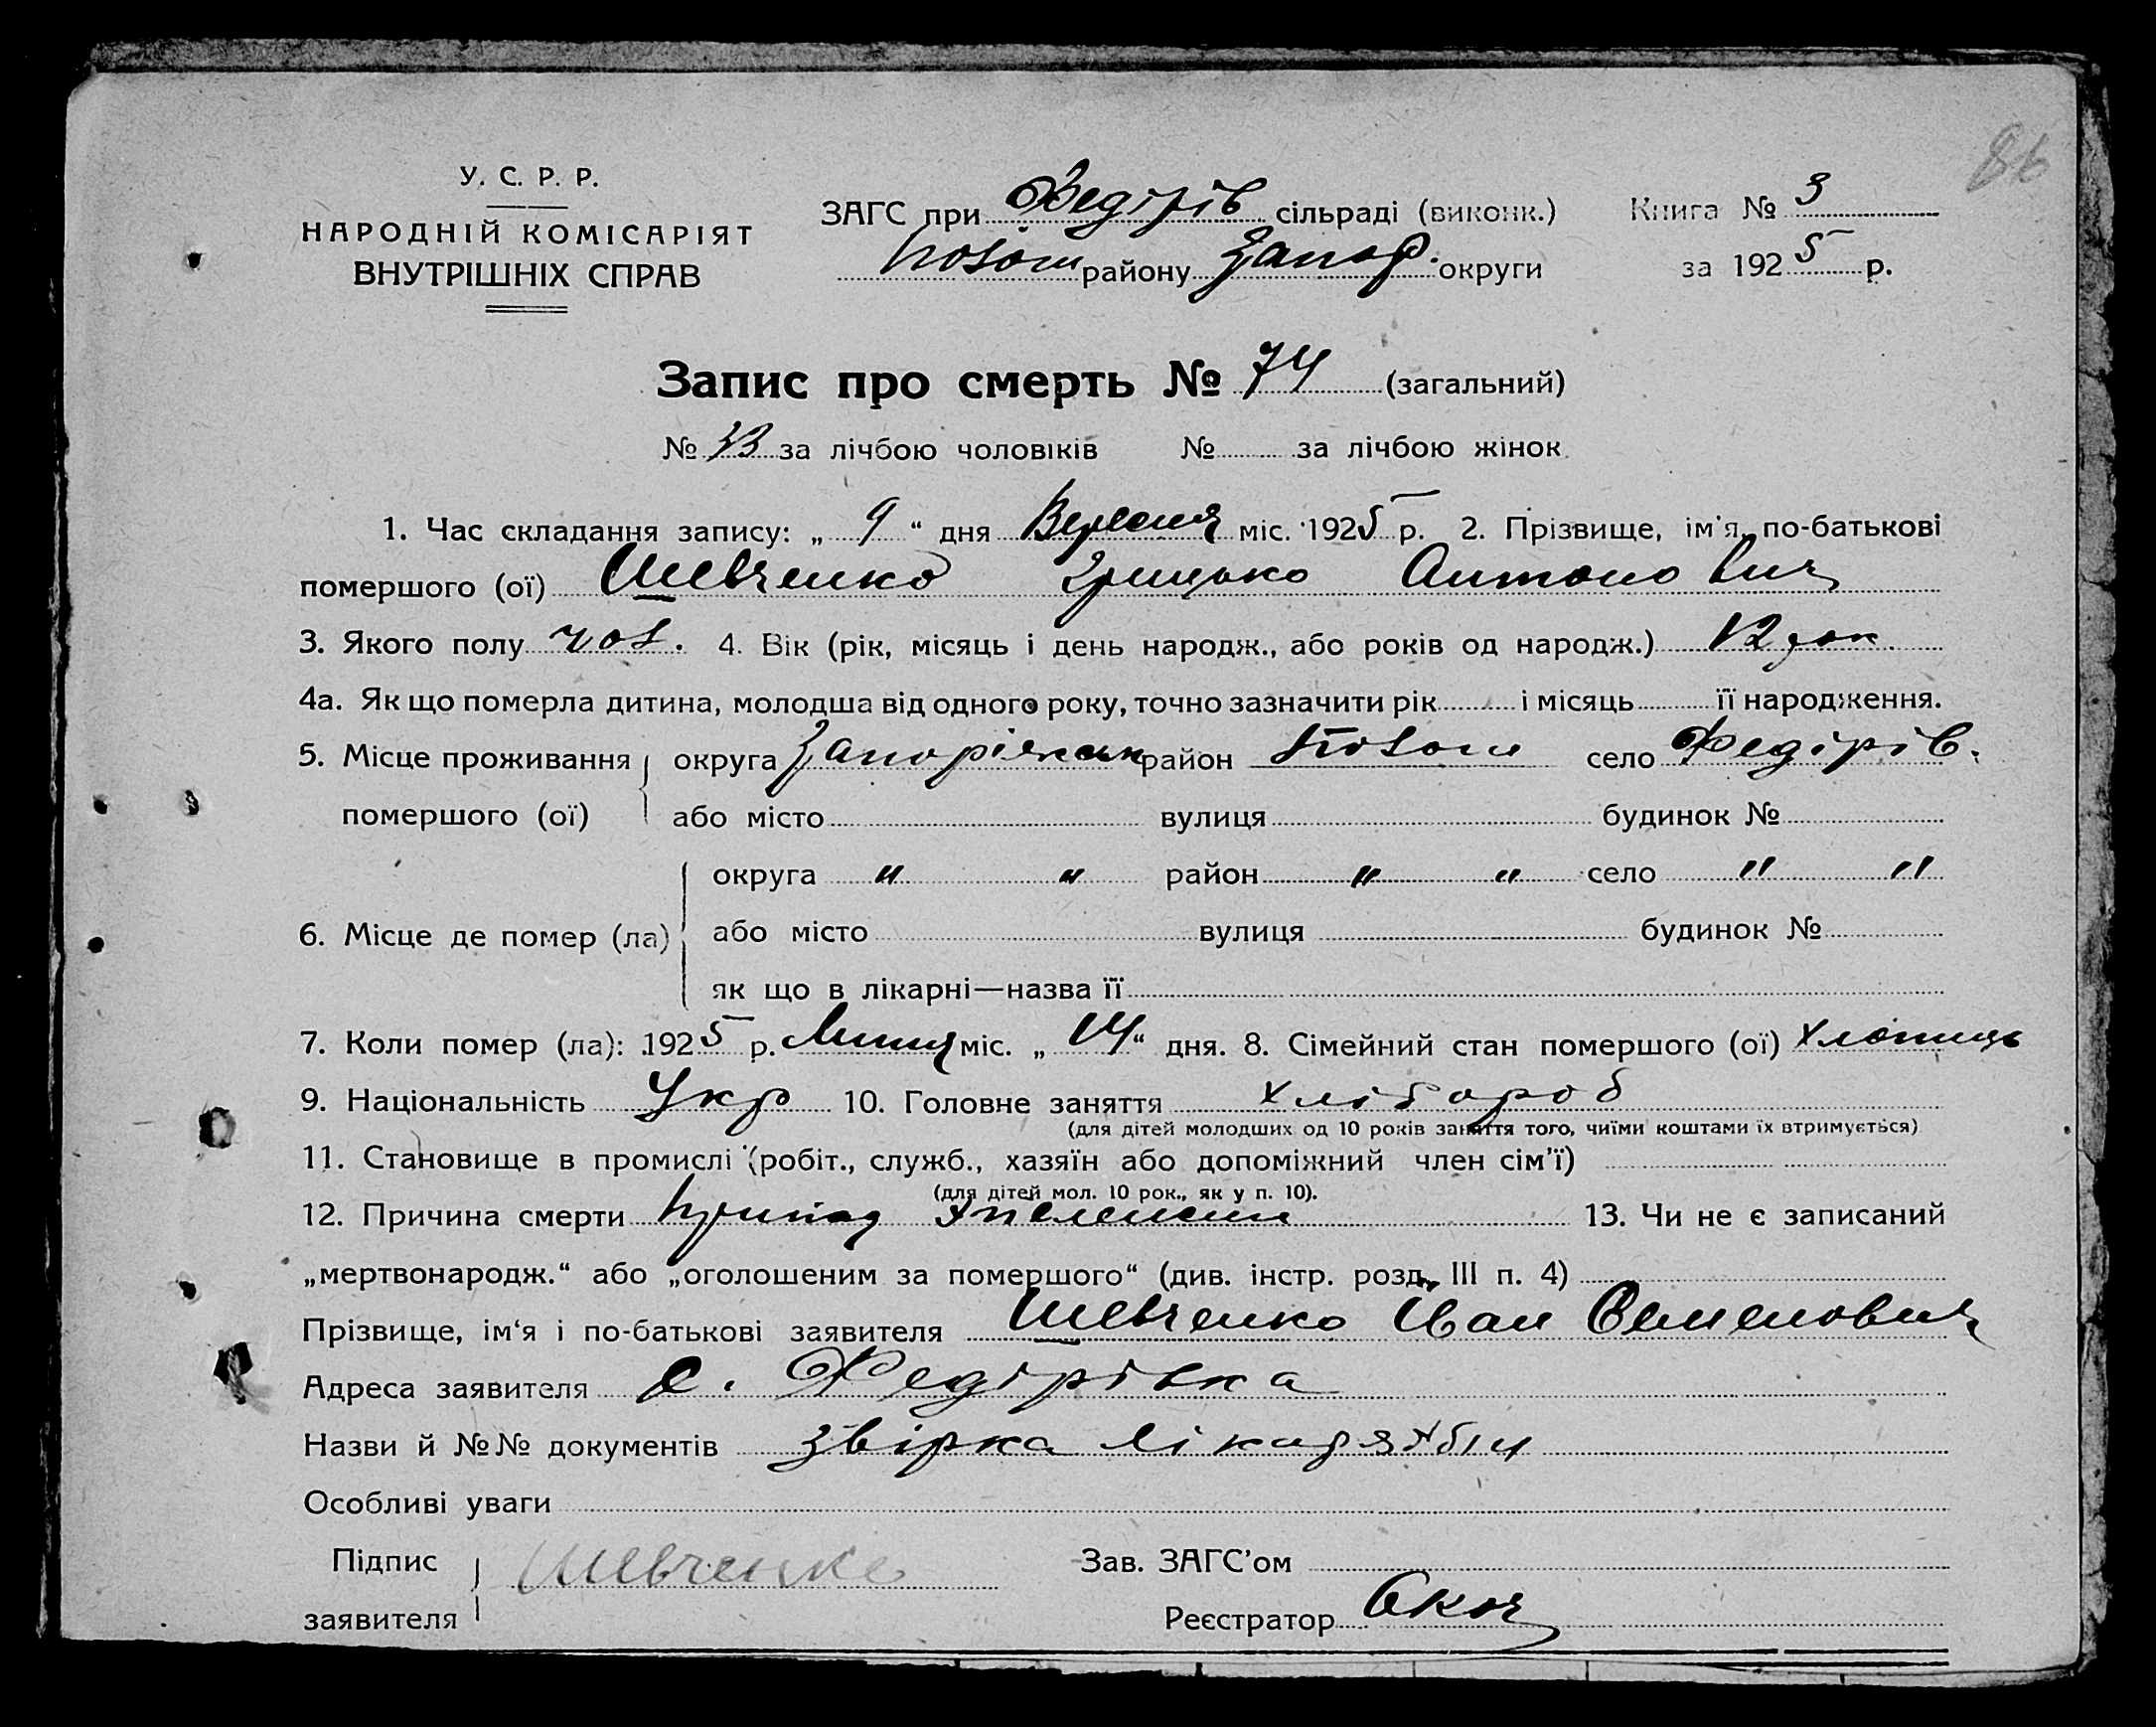 86
У. С. Р. Р.
НАРОДНІЙ КОМІСАРІЯТ
ВНУТРІШНІХ СПРАВ
ЗАГС при Федірів сільраді (виконк.)
району Запор. округи
Книга № 3
за 1925 р.
Запис про смерть № 74 (загальний)
№ 33 за лічбою чоловіків № за лічбою жінок
1. Час складання запису: „ 9 “ дня Вересня міс. 1925 р. 2. Прізвище, ім'я, по-батькові
помершого (ої) Шевченко Грицько Антонович
3. Якого полу чол. 4. Вік (рік, місяць і день народж., або років од народж.) 12 рок.
4а. Як що померла дитина, молодша від одного року, точно зазначити рік і місяць її народження.
5. Місце проживання округа Запоріжськ район село Федірів.
помершого (ої) або місто вулиця будинок №
округа " " район " " село " "
6. Місце де помер (ла) або місто вулиця будинок №
як що в лікарні—назва її
7. Коли помер (ла): 1925 р. Липня міс. „ 14 “ дня. 8. Сімейний стан помершого (ої) хлопиць
9. Національність Укр 10. Головне заняття хлібороб
(для дітей молодших од 10 років заняття того, чиїми коштами їх втримується)
11. Становище в промислі (робіт., служб., хазяїн або допоміжний член сім'ї)
(для дітей мол. 10 рок., як у п. 10).
12. Причина смерти припад 13. Чи не є записаний
„мертвонародж.“ або „оголошеним за помершого“ (див. інстр. розд. III п. 4)
Прізвище, ім'я і по-батькові заявителя Шевченко Іван Семенович
Адреса заявителя с. Федірівка
Назви й №№ документів звірка лікаря
Особливі уваги
Підпис
заявителя Шевченко
Зав. ЗАГС'ом
Реєстратор